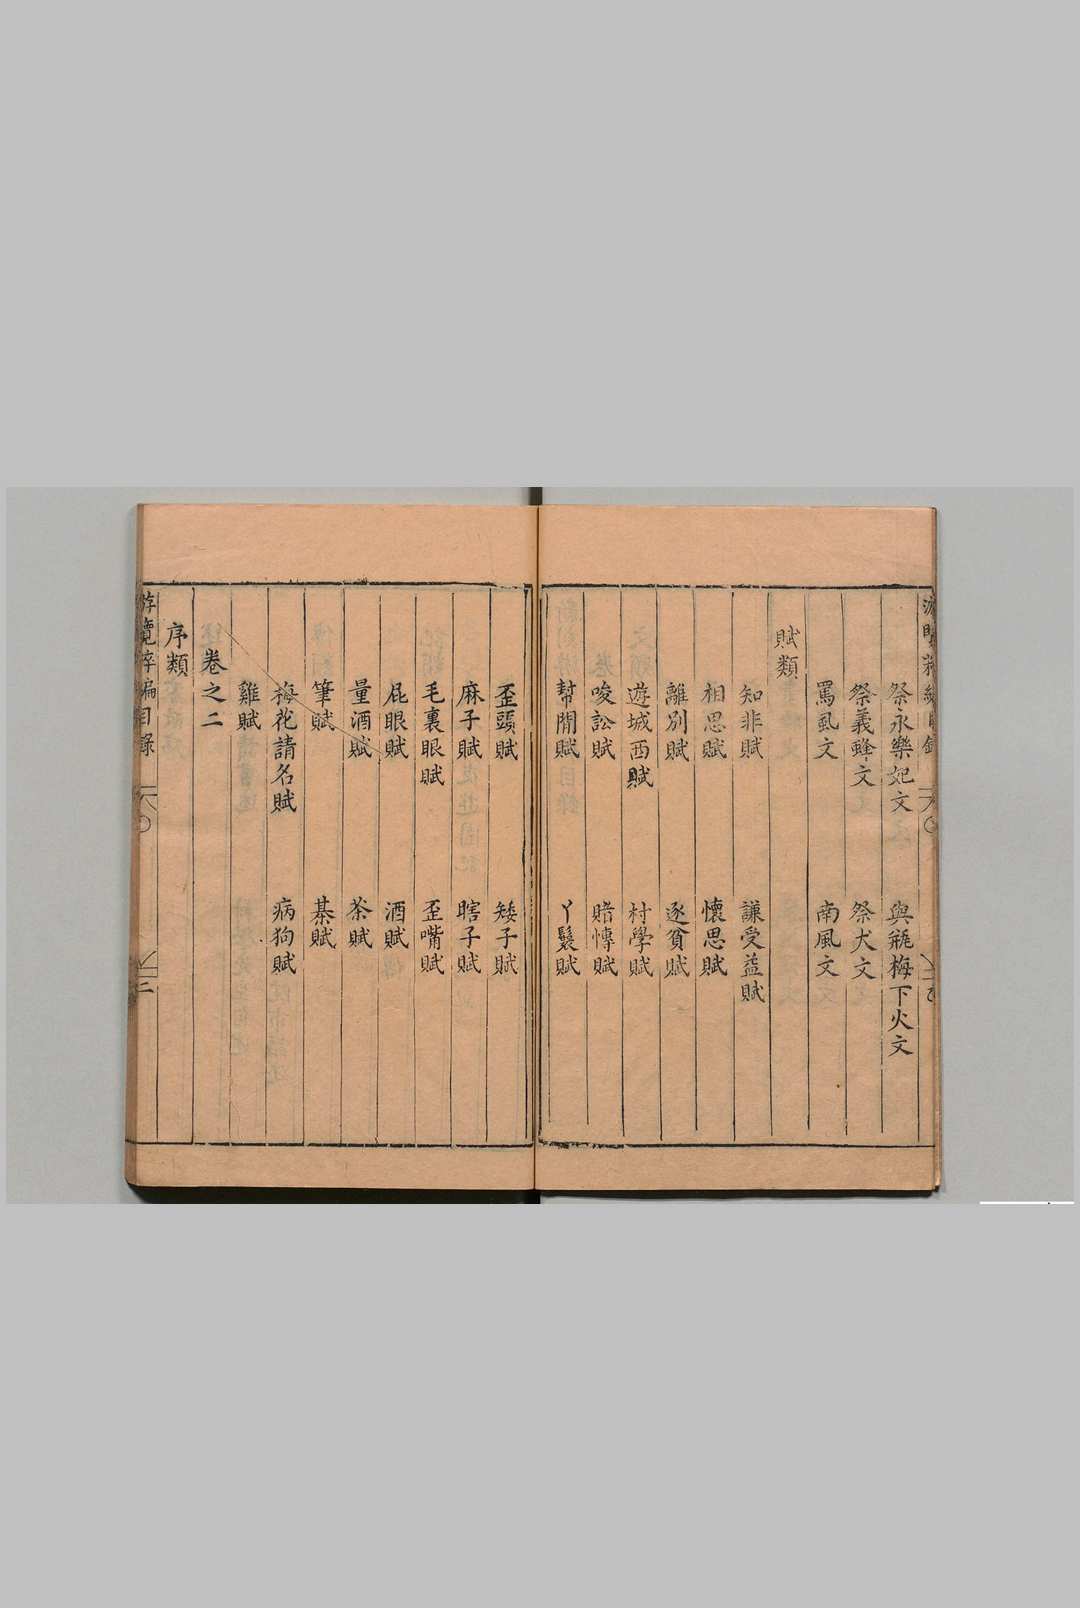 祭永樂妃文 與瓶梅下火文
祭義蜂文 祭犬文
罵虱文 南風文
賦類
知非賦 謙受益賦
相思賦 懷思賦
離別賦 逐貧賦
遊城西賦 村學賦
唆訟賦 賭慱賦
幫閒賦 丫鬟賦
歪頭賦 矮子賦
麻子賦 瞎子賦
毛裏眼賦 歪嘴賦
屁眼賦 酒賦
量酒賦 茶賦
筆賦 棊賦
梅花請名賦 病狗賦
雞賦
卷之二
序類
游覽粹編目錄 六 二